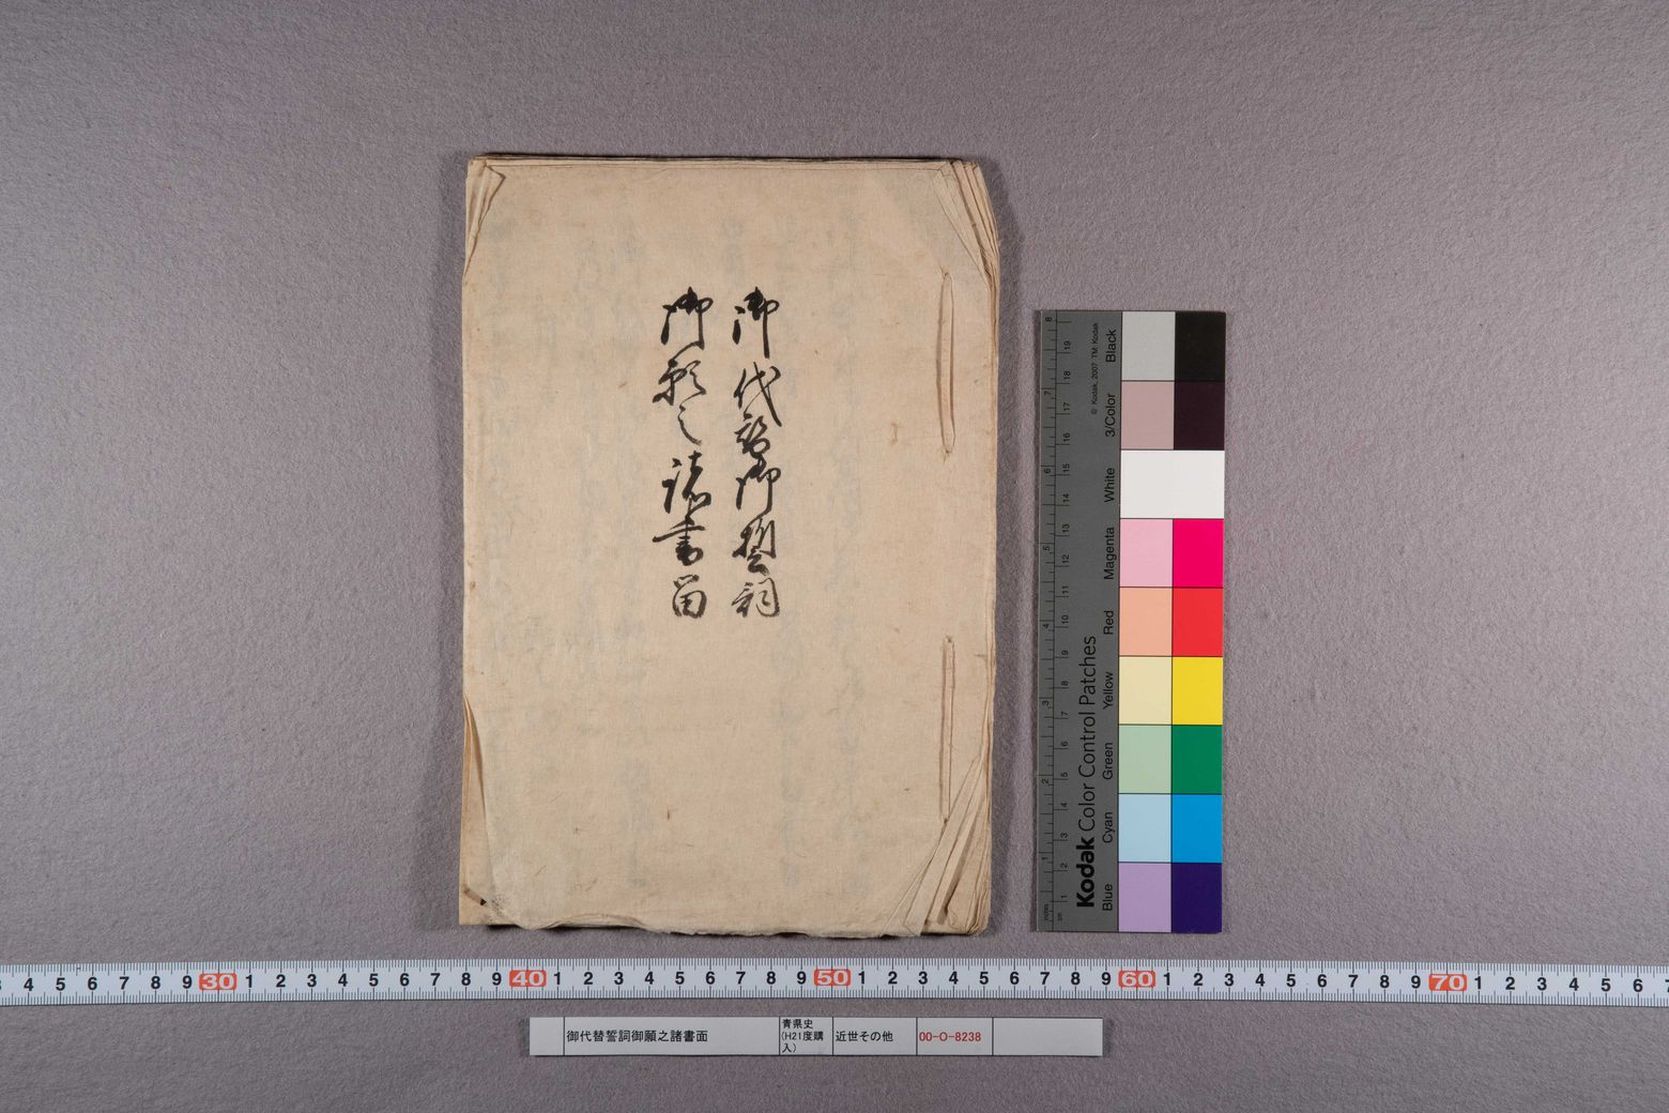 御代替御誓詞
御願之諸書留
御代替誓詞御願之諸書面
青県史
(H21度購
入)
近世その他
00-O-8238
Kodak Color Control Patches
© Kodak, 2007 TM: Kodak
Blue Cyan Green Yellow Red Magenta White 3/Color Black
inches 1 2 3 4 5 6 7 8
cm 1 2 3 4 5 6 7 8 9 10 11 12 13 14 15 16 17 18 19
3 4 5 6 7 8 9 30 1 2 3 4 5 6 7 8 9 40 1 2 3 4 5 6 7 8 9 50 1 2 3 4 5 6 7 8 9 60 1 2 3 4 5 6 7 8 9 70 1 2 3 4 5 6 7